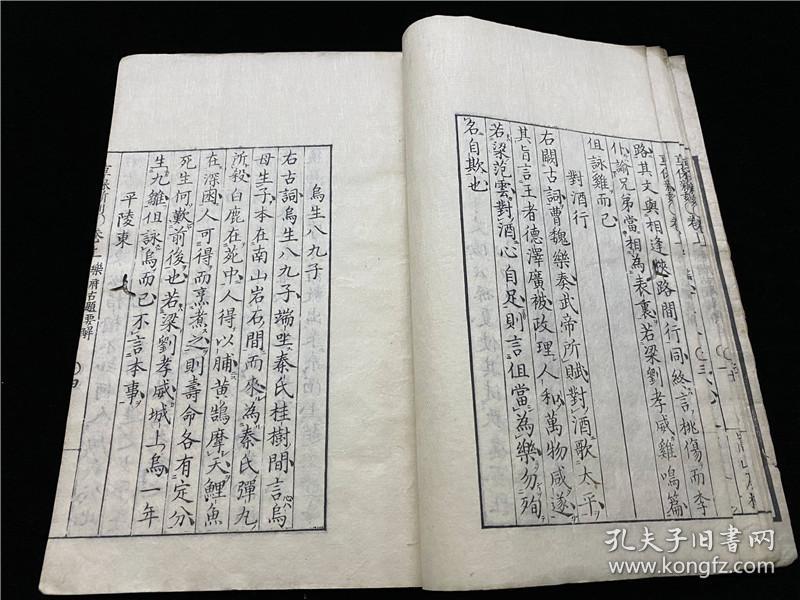 路其文與相逢狹路間行同終言桃傷而李
仆諭兄弟當相為表裏若梁劉孝威雞鳴篇
但詠雞而已
對酒行
右闕古詞曹魏樂奏武帝所賦對酒歌太平
其旨言王者德澤廣被政理人和萬物咸遂
若梁范雲對酒心自足則言但當為樂勿殉
名自欺也
烏生八九子
右古詞烏生八九子端坐秦氏桂樹間言烏
母生子本在南山岩石間而來為秦氏彈丸
所殺白鹿在苑中人得以脯黃鵠摩天鯉魚
在深困人可得而烹煮之則壽命各有定分
死生何歎前後也若梁劉孝威城上烏一年
生九雛但詠烏而已不言本事
平陵東
樂府古題要解
四
孔夫子旧書网
www.kongfz.com